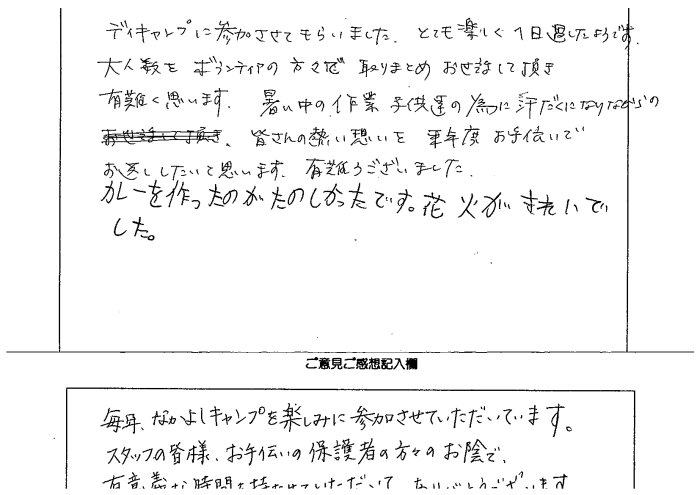 デイキャンプに参加させてもらいました。とても楽しく1日過したようです。
大人数を ボランティアの方々で 取りまとめ お世話して頂き
有難く思います。暑い中の作業 子供達の為に汗だくになりながらの
お世話して頂き、皆さんの熱い想いを 来年度 お手伝いで
お返ししたいて思います。有難うございました。
カレーを作ったのがたのしかったです。花火がきれいで
した。
ご意見ご感想記入欄
毎年、なかよしキャンプを楽しみに参加させていただいています。
スタッフの皆様、お手伝いの保護者の方々のお陰で、
有意義な時間を持たせていただいて ありがとうございます